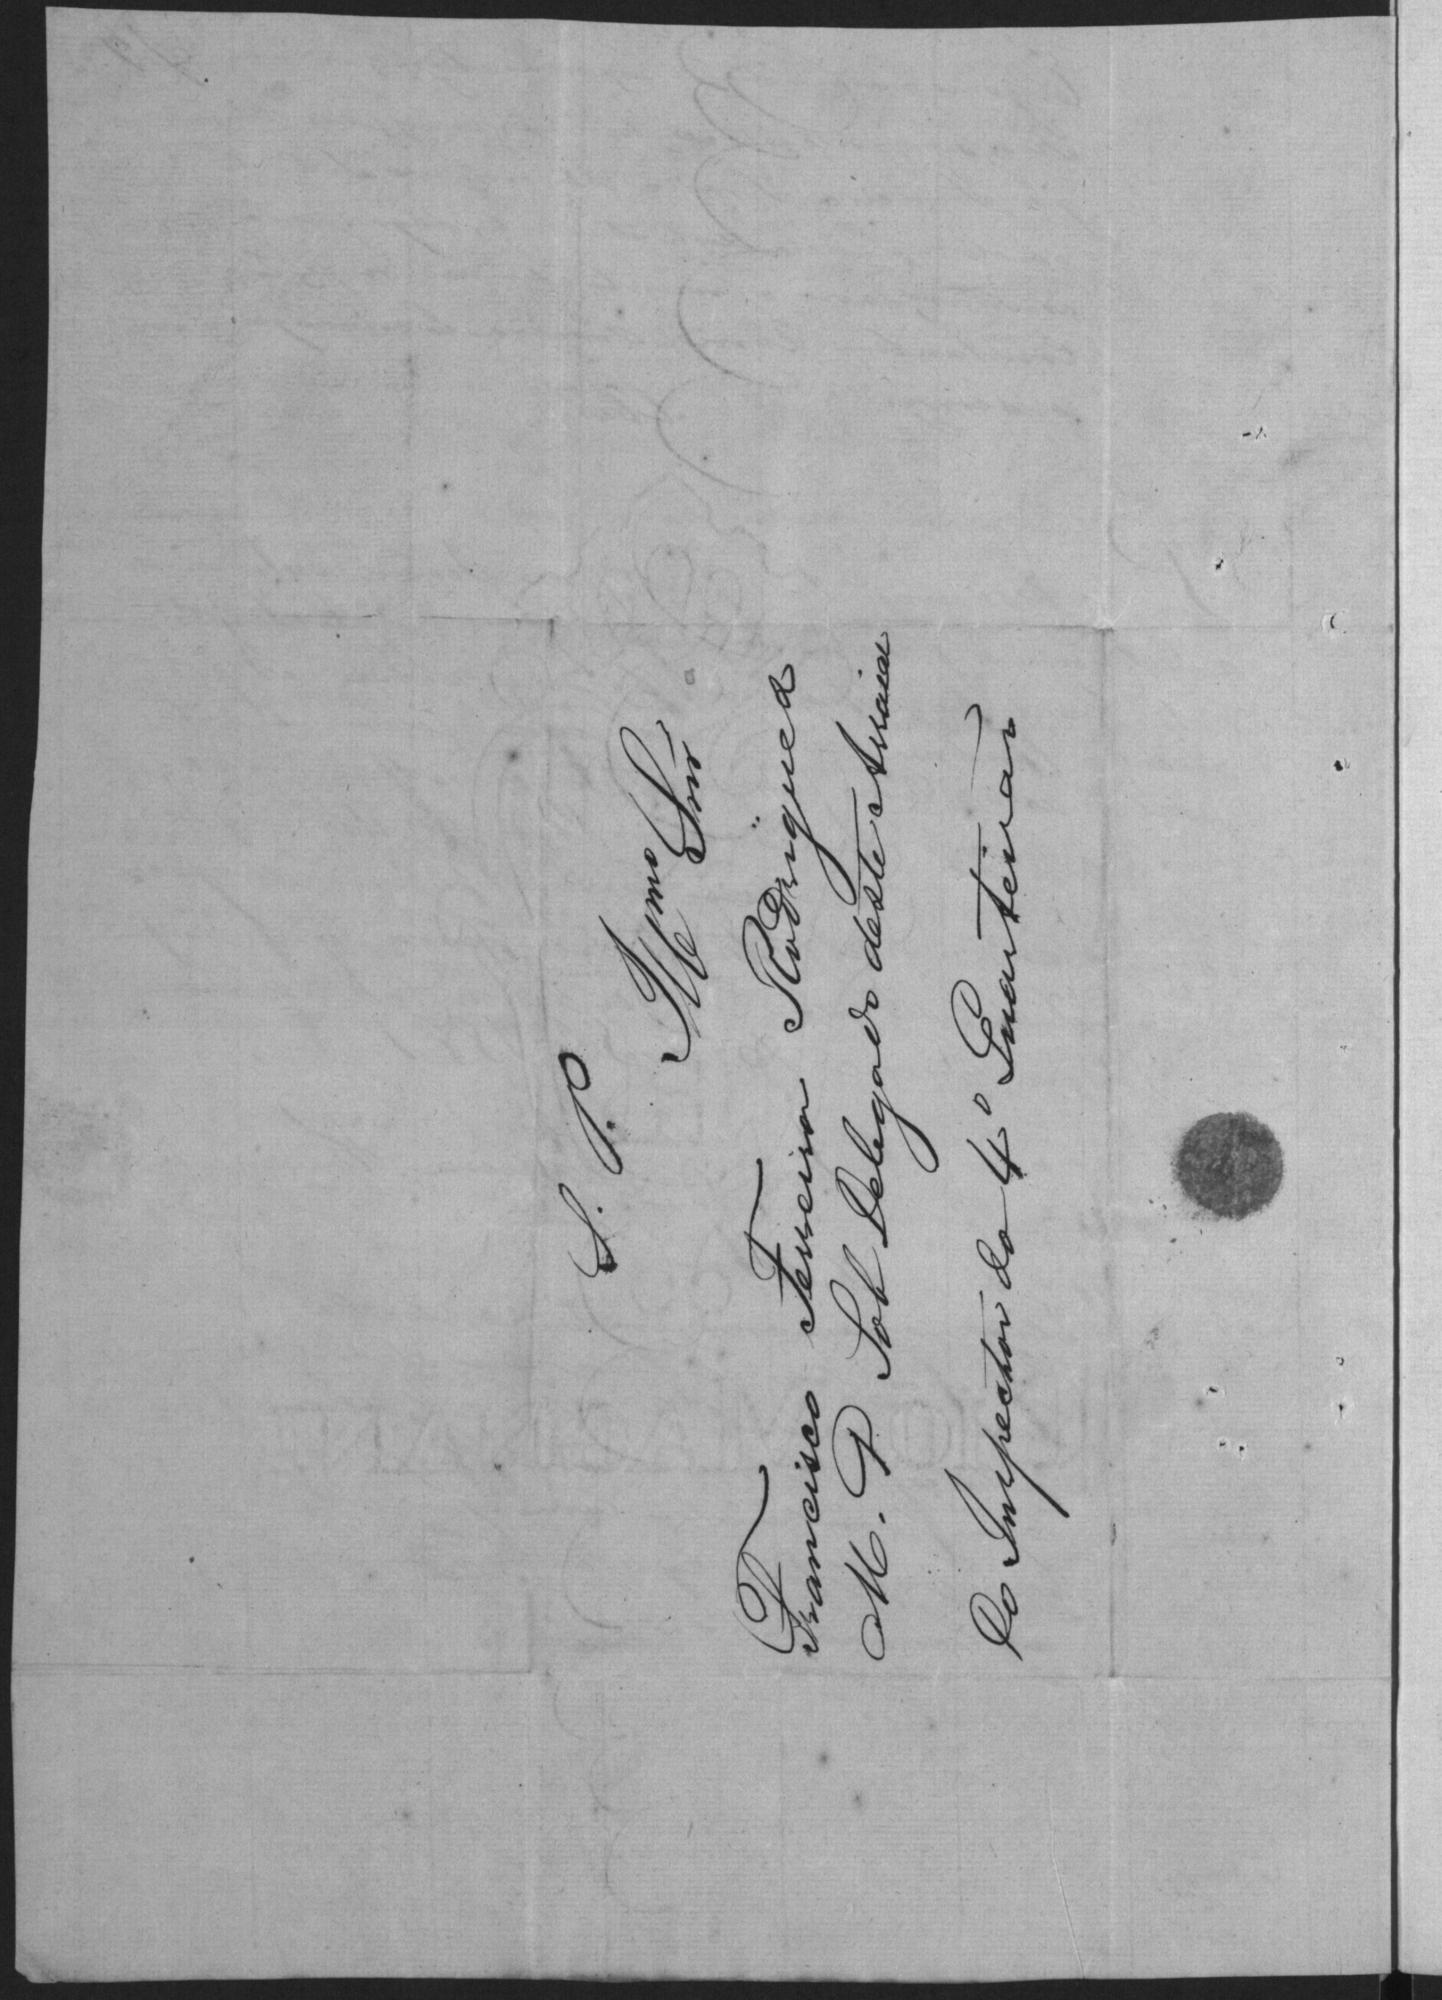 S. P.
Illmo Snr
Francisco Ferreira Rodrigues
M. D. Sob Delegado deste
Do Inspector do 4º Quarteirão